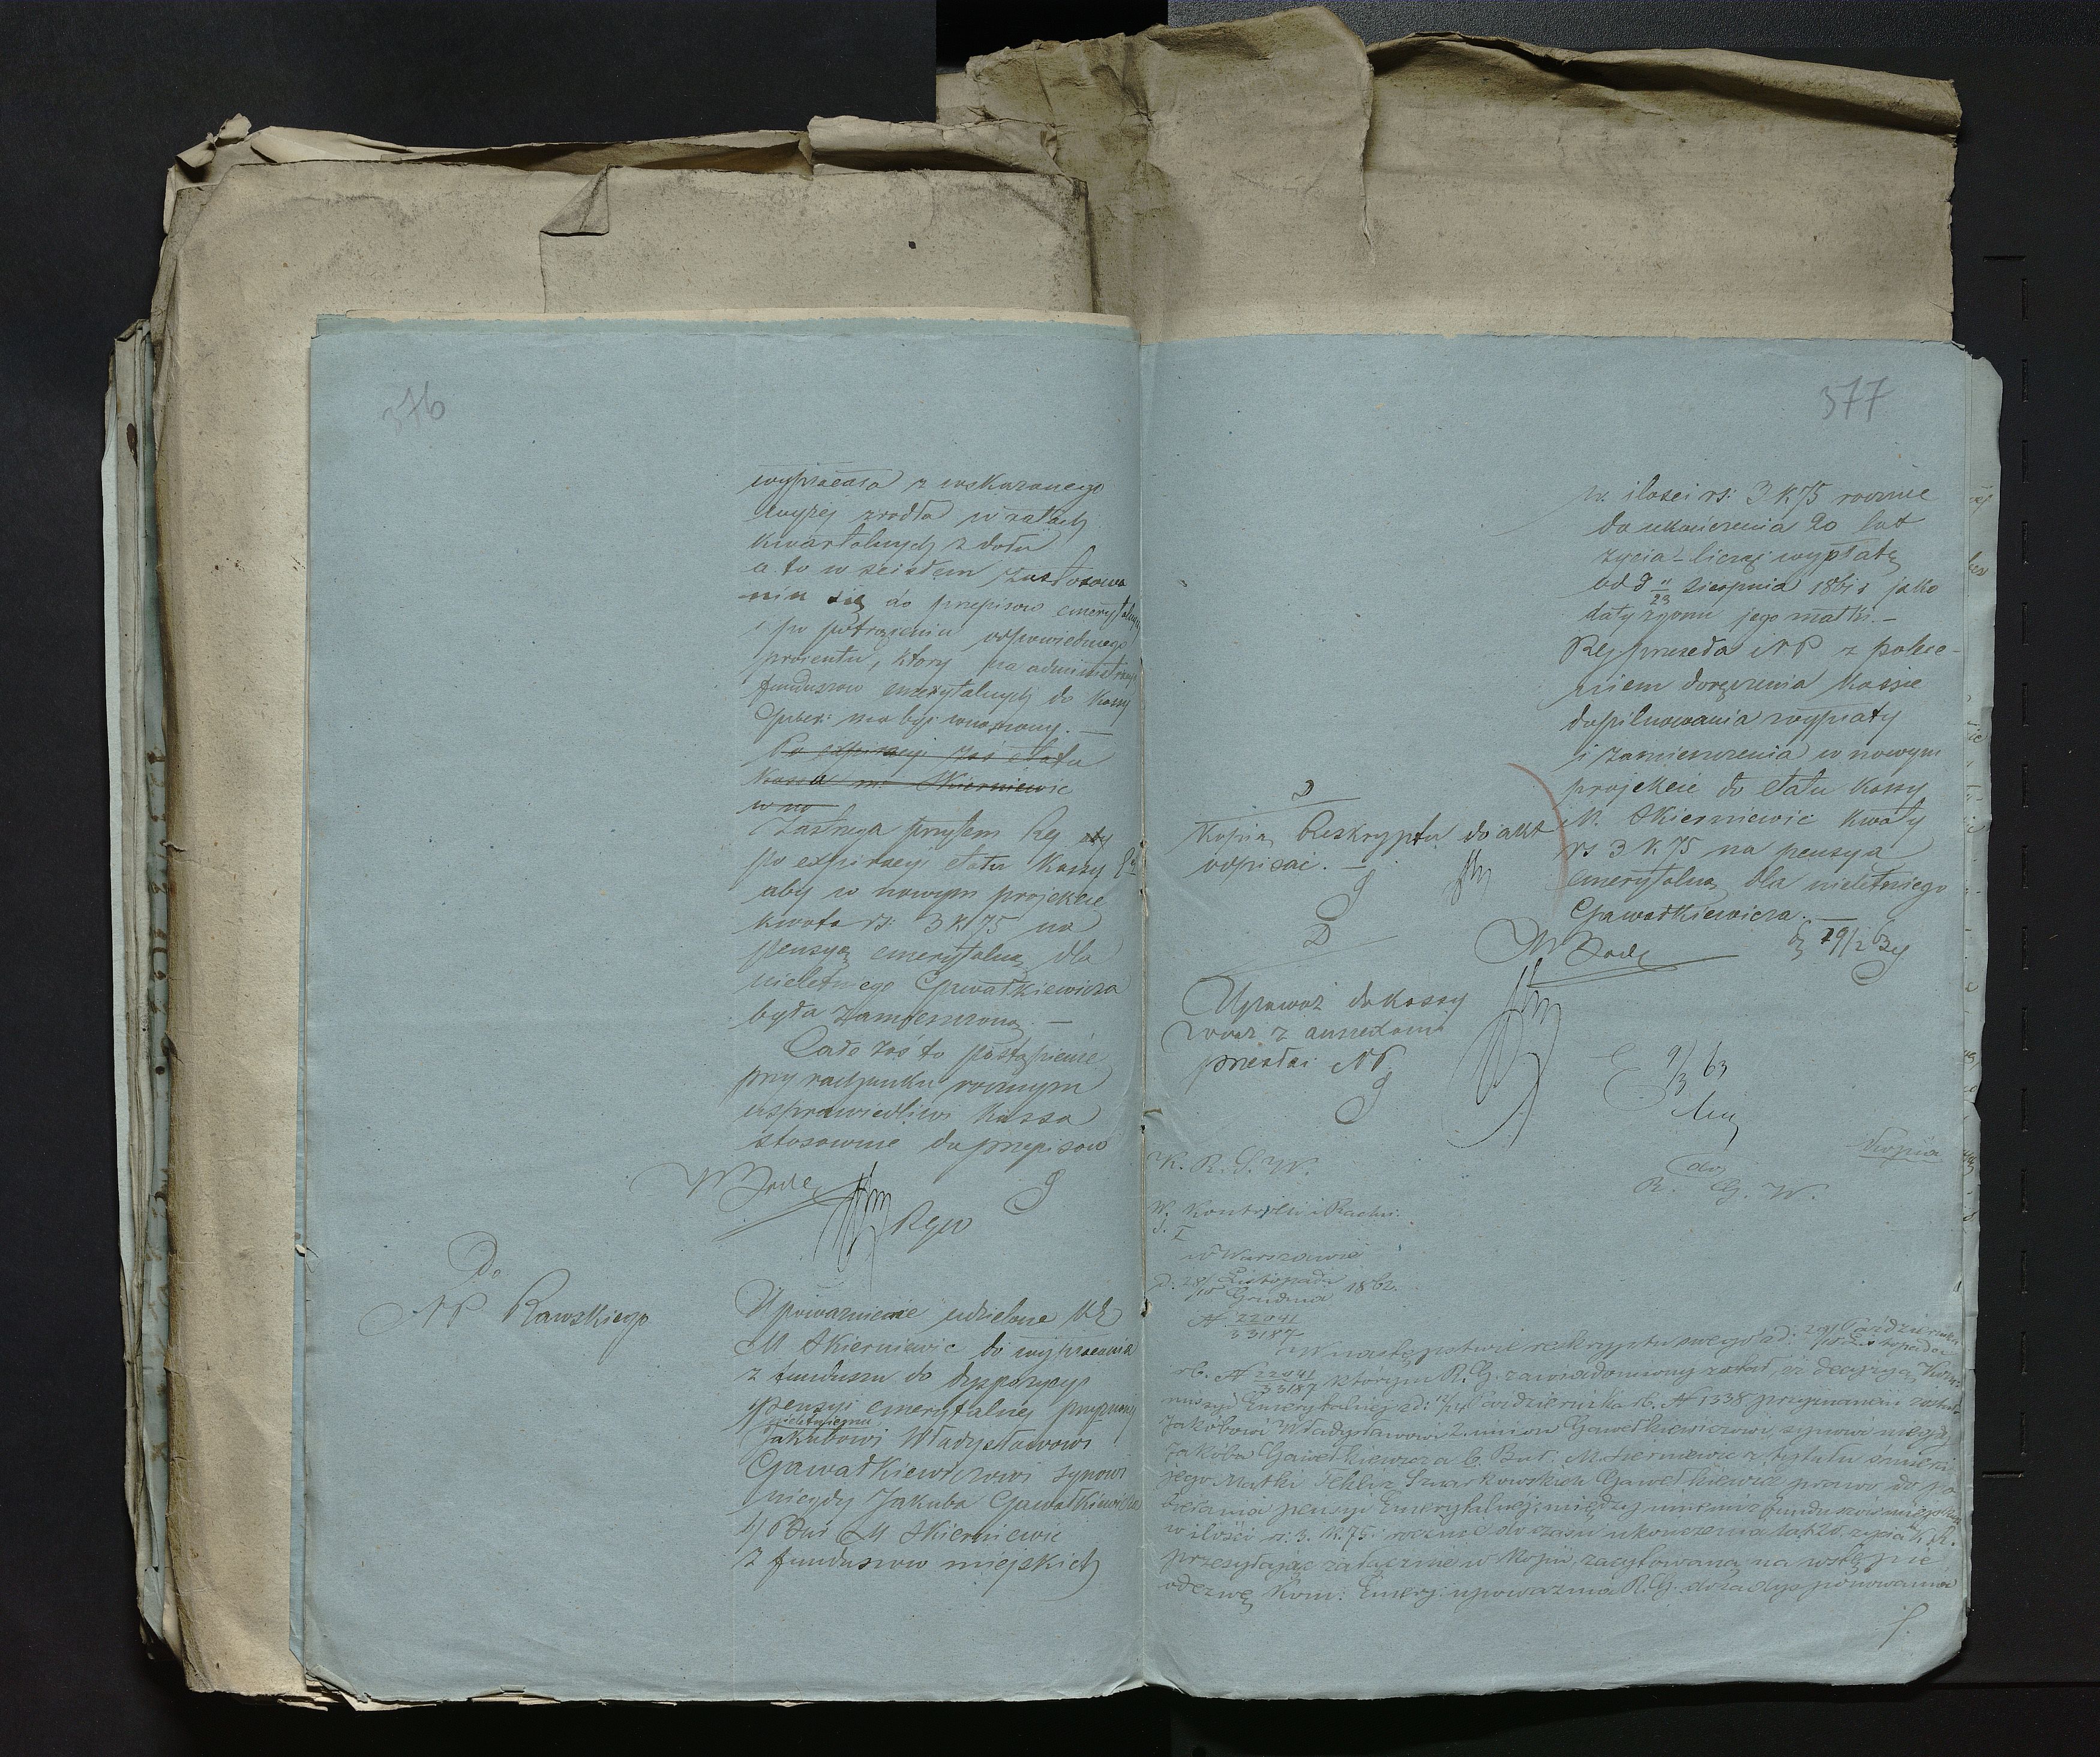 376
wypłacała z wskazanego
wyżej zrodła w ratach
kwartalnych z dołu
a to w scisłem zastosowa
niu się do przepisow emerytalnych
i po potrąceniu odpowiedniego
procentu, ktory na administracyą
funduszow emerytalnych do Kassy
Guber: ma być wnoszony. —
Po expiracyi zaś etatu
Kassa m. Skierniewic
w no
Zastrzega przytem Rg. aby
po expiracyi etatu Kassy
aby w nowym projekcie
kwota rs: 3 k 75 na
pensyą emerytalną dla
nieletniego Gawałkiewicza
była zamieszczoną. —
Całe zaś to postąpienie
przy rachunku rocznym
usprawiedliwi Kassa
stosownie do przepisow
Rgw
Do
NP Rawskiego
Upoważnienie udzielone
M Skierniewic do wypłacania
z funduszu do dyspozycyi
pensyi emerytalnej przyznanej
nieletniemu
Jakubowi Władysławowi
Gawałkiewiczowi synowi
niegdy Jakuba Gawałkiewicza
b/ Bur M Skierniewic
z funduszow miejskich
377
w ilosci rs: 3 k 75 rocznie
do ukończenia 20 lat
życia – licząc wypłatę
od d 11/23 Sierpnia 1861 r jako
daty zgonu jego matki. —
Rg. przeseła NP z polece-
niem doręczenia Kassie
dopilnowania wypłaty
i zamieszczenia w nowym
projekcie do etatu Kassy
M. Skierniewic kwoty
rs 3 k 75 na pensyą
emerytalną dla nieletniego
Gawałkiewicza. —
D
Kopią Reskryptu do akt
odpisać. —
D
Upoważ do Kassy
wraz z annexami
przesłać NP.
9/3 63
Kopia
K. R. S. W.
do
R. G. W.
W. Kontrolli i Rachu.
S. I
w Warszawie
D. 28/10 Listopada/Grudnia 1862.
N 22041/33187
W następstwie reskryptu swego z d: 29/10 Października/Listopada
rb. N 22041/33187 którym R. G. zawiadomiony został, iż decyzyą Kom-
missyi Emerytalnej z d: 12/24 Października rb. N 1338 przyznanem zostało
Jakóbowi Władysławowi 2. imion Gawełkiewiczowi, synowi niegdy
Jakóba Gawełkiewicza b. Bur. M. Skierniewic z tytułu śmierci
jego Matki Tekli z Szwarkowskich Gawełkiewicz prawo do po
bierania pensyi Emerytalnej, między innemi z funduszów miejskich
w ilości rs. 3. k. 75. rocznie do czasu ukończenia lat 20. życia, K. R.
przesyłając załącznie w kopii, zacytowaną na wstępie
odezwę Kom: Emery: upoważnia R. G. do zadysponowania